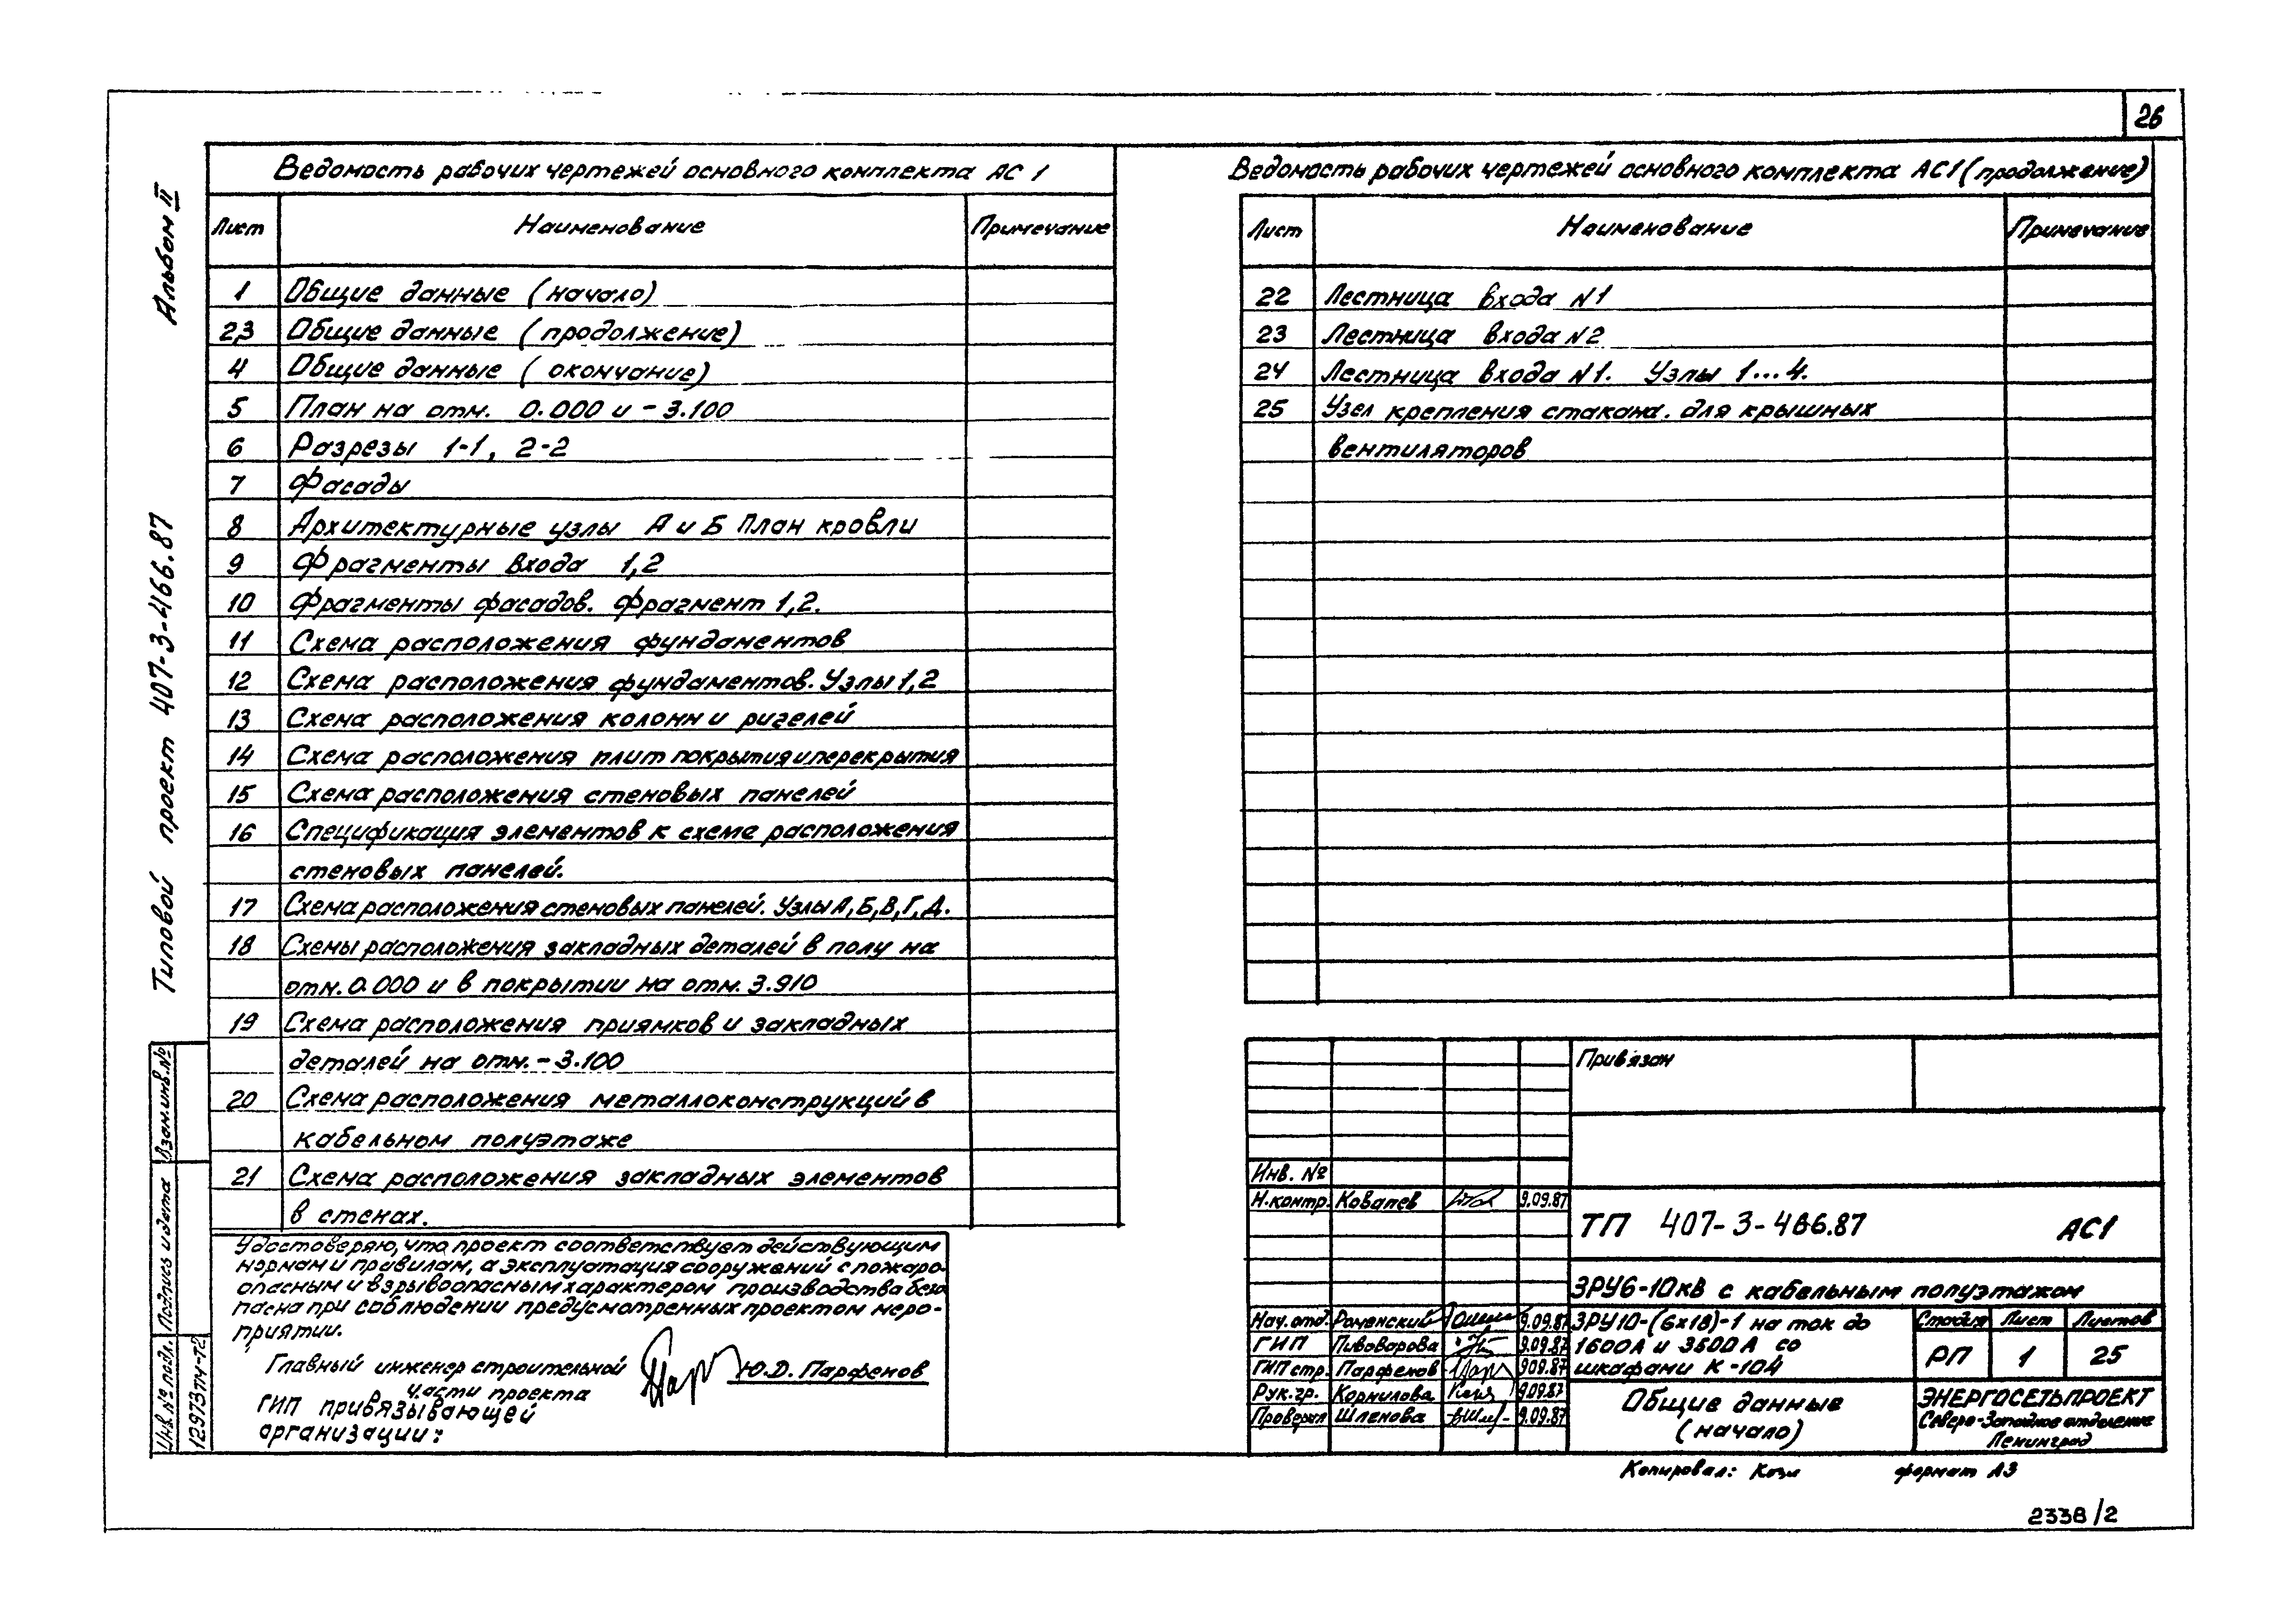 26
Альбом II
Типовой проект 407-3-466.87
Ведомость рабочих чертежей основного комплекта АС 1
Лист Наименование Примечание
1 Общие данные (начало)
2,3 Общие данные (продолжение)
4 Общие данные (окончание)
5 План на отм. 0.000 и -3.100
6 Разрезы 1-1, 2-2
7 Фасады
8 Архитектурные узлы А и Б План кровли
9 Фрагменты входа 1,2
10 Фрагменты фасадов. Фрагмент 1,2.
11 Схема расположения фундаментов
12 Схема расположения фундаментов. Узлы 1,2
13 Схема расположения колонн и ригелей
14 Схема расположения плит покрытия и перекрытия
15 Схема расположения стеновых панелей
16 Спецификация элементов к схеме расположения
стеновых панелей.
17 Схема расположения стеновых панелей. Узлы А,Б,В,Г,Д.
18 Схемы расположения закладных деталей в полу на
отм. 0.000 и в покрытии на отм. 3.910
19 Схема расположения приямков и закладных
деталей на отм. -3.100
20 Схема расположения металлоконструкций в
кабельном полуэтаже
21 Схема расположения закладных элементов
в стенах.
Удостоверяю, что проект соответствует действующим
нормам и правилам, а эксплуатация сооружений с пожаро-
опасным и взрывоопасным характером производства безо
пасна при соблюдении предусмотренных проектом меро-
приятии.
Главный инженер строительной
части проекта
Ю.Д. Парфенов
ГИП привязывающей
организации:
Взам.инв.№
Подпись и дата
Инв.№ подл.
12973тм-т2
Ведомость рабочих чертежей основного комплекта АС1 (продолжение)
Лист Наименование Примечание
22 Лестница входа N1
23 Лестница входа N2
24 Лестница входа N1. Узлы 1...4.
25 Узел крепления стакана. для крышных
вентиляторов
Привязан
Инв. №
Н.контр. Ковалев 9.09.87
ТП 407-3-466.87 АС1
ЗРУ6-10кВ с кабельным полуэтажом
Нач.отд. Роменский 9.09.87
ГИП Пивоварова 9.09.87
ГИП стр. Парфенов 9.09.87
Рук.гр. Корнилова 9.09.87
Проверил Шленова 9.09.87
ЗРУ10-(6x18)-1 на ток до
1600А и 3500А со
шкафами К-104
Стадия Лист Листов
РП 1 25
Общие данные
(начало)
ЭНЕРГОСЕТЬПРОЕКТ
Северо-Западное отделение
Ленинград
Копировал: формат А3
2338/2